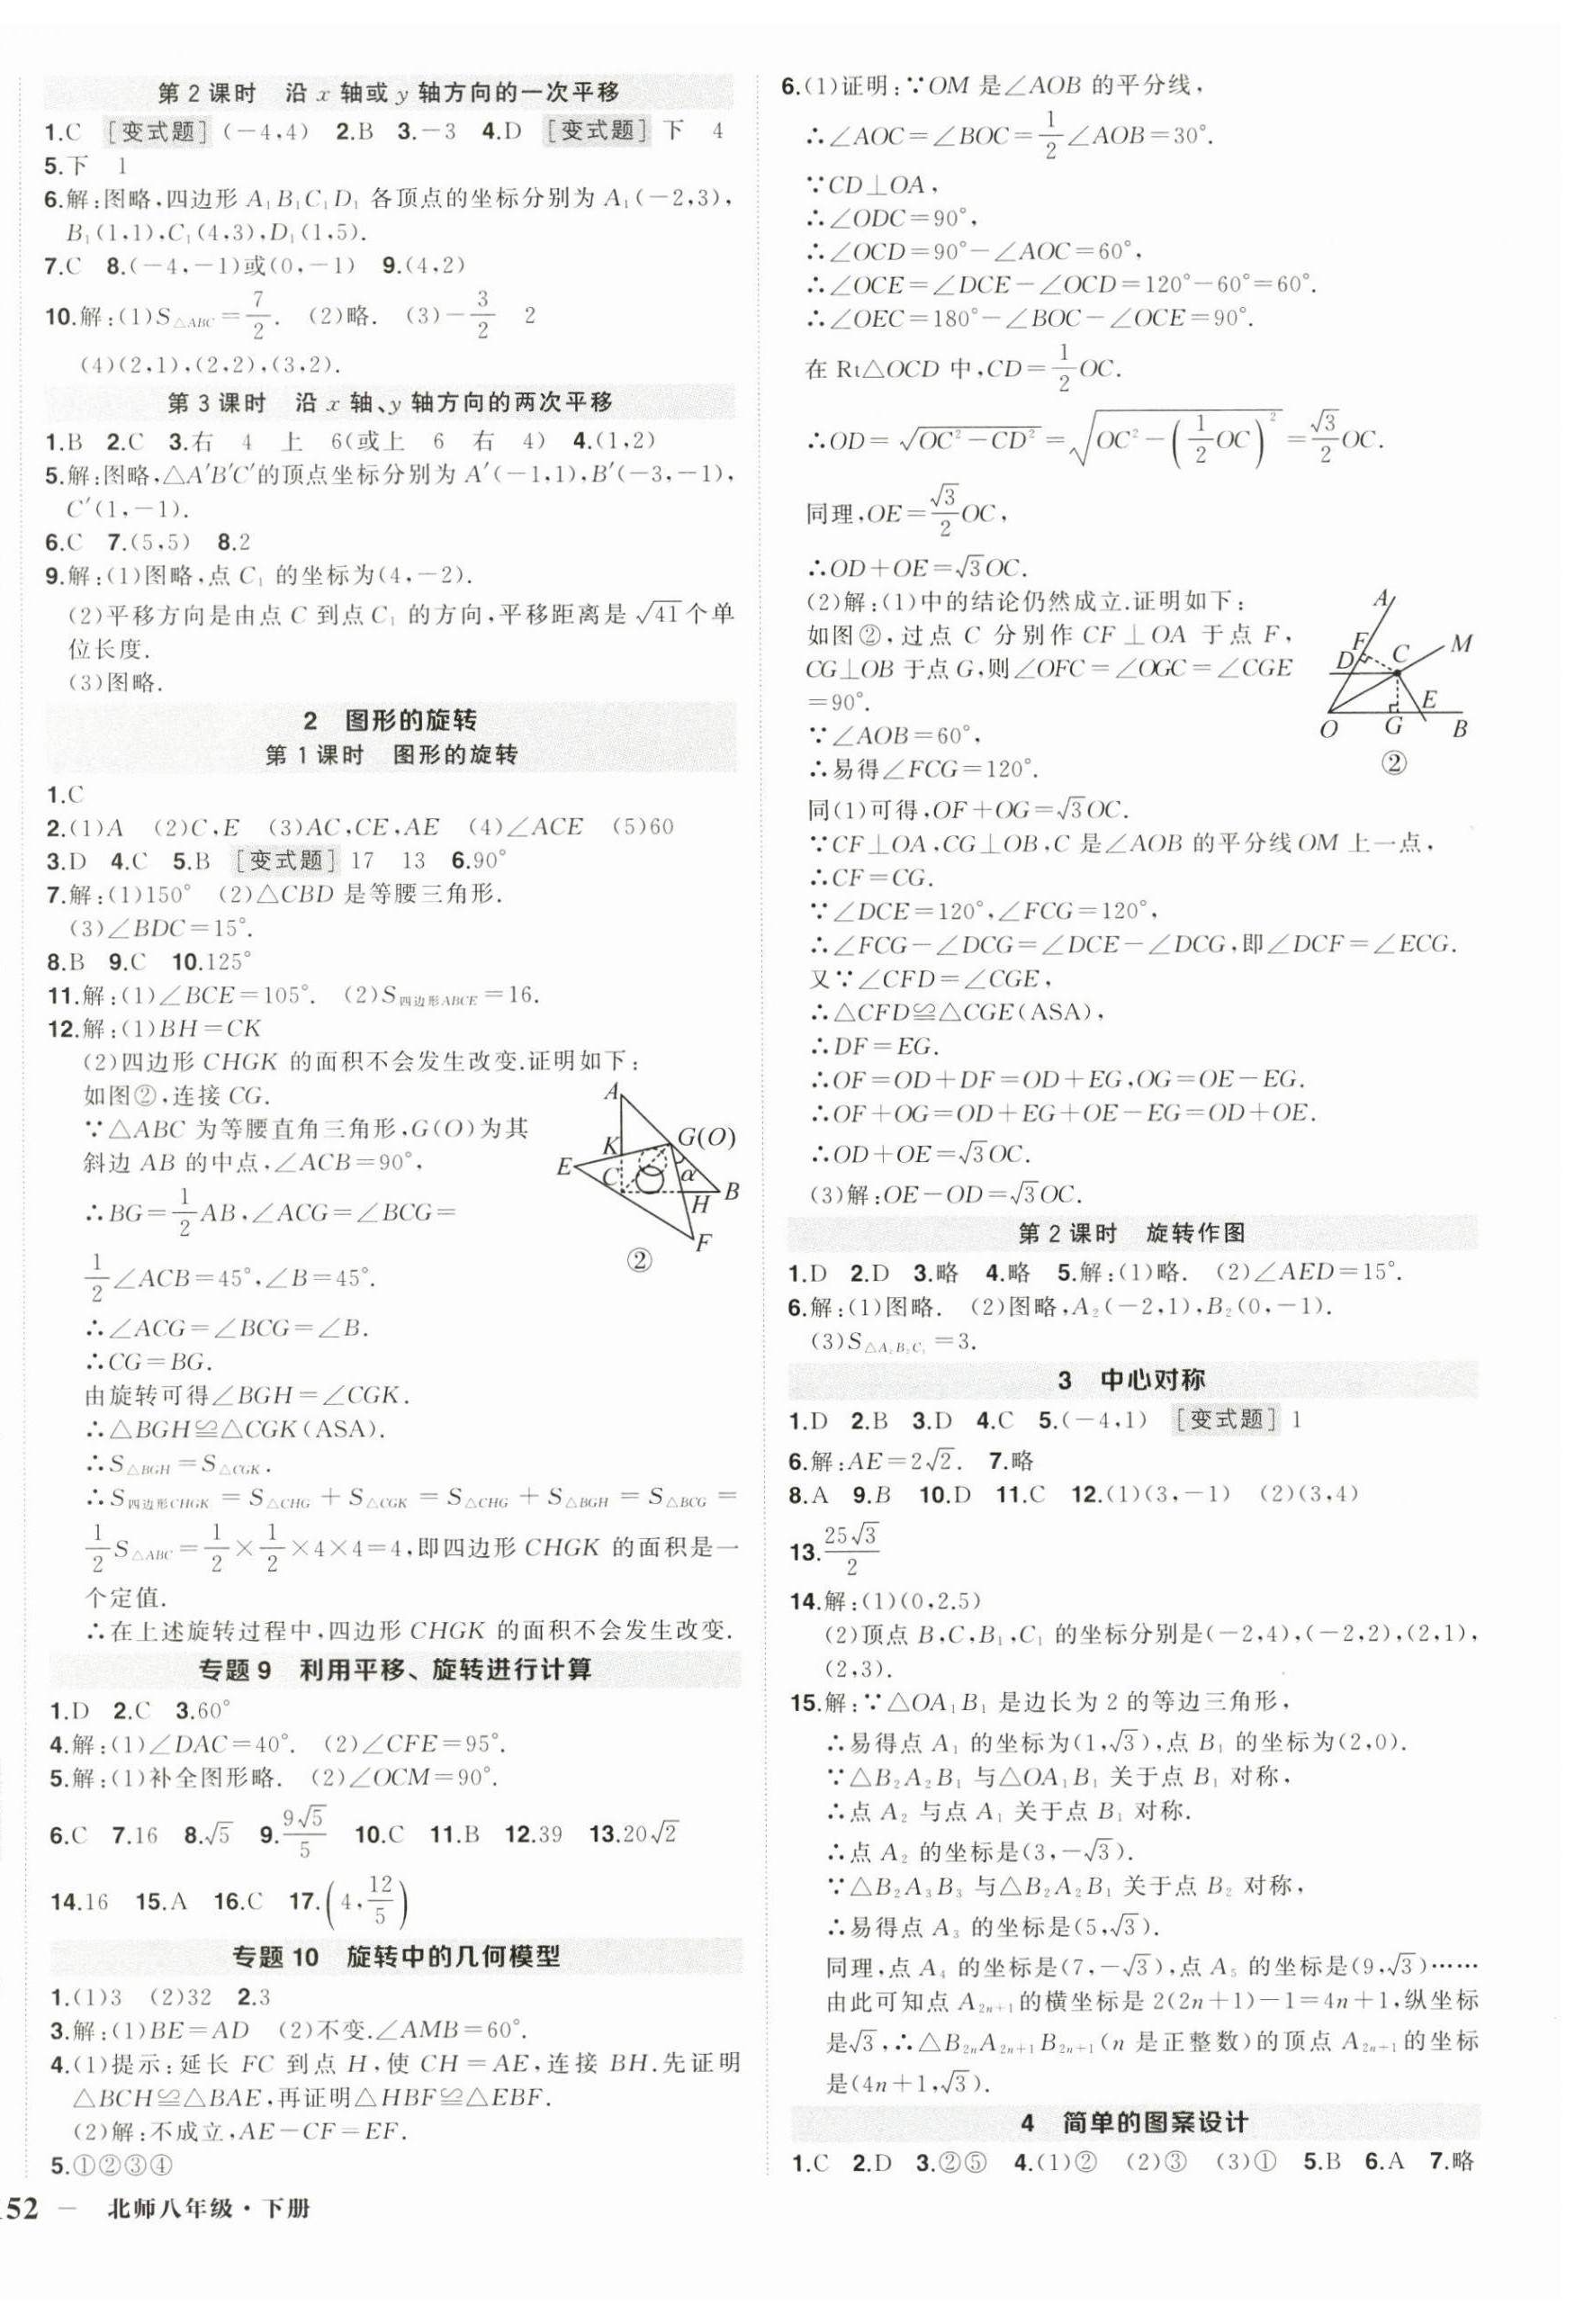 第2课时 沿x轴或y轴方向的一次平移
1.C [变式题](-4,4) 2.B 3.-3 4.D [变式题]下 4
5.下 1
6.解:图略,四边形A₁B₁C₁D₁各顶点的坐标分别为A₁(-2,3),
B₁(1,1),C₁(4,3),D₁(1,5).
7.C 8.(-4,-1)或(0,-1) 9.(4,2)
10.解:(1)S△ABC=7/2. (2)略. (3)-3/2 2
(4)(2,1),(2,2),(3,2).
第3课时 沿x轴、y轴方向的两次平移
1.B 2.C 3.右 4 上 6(或上 6 右 4) 4.(1,2)
5.解:图略,△A′B′C′的顶点坐标分别为A′(-1,1),B′(-3,-1),
C′(1,-1).
6.C 7.(5,5) 8.2
9.解:(1)图略,点C₁的坐标为(4,-2).
(2)平移方向是由点C到点C₁的方向,平移距离是√41个单
位长度.
(3)图略.
2 图形的旋转
第1课时 图形的旋转
1.C
2.(1)A (2)C,E (3)AC,CE,AE (4)∠ACE (5)60
3.D 4.C 5.B [变式题]17 13 6.90°
7.解:(1)150° (2)△CBD是等腰三角形.
(3)∠BDC=15°.
8.B 9.C 10.125°
11.解:(1)∠BCE=105°. (2)S四边形ABCE=16.
12.解:(1)BH=CK
(2)四边形CHGK的面积不会发生改变.证明如下:
如图②,连接CG.
∵△ABC为等腰直角三角形,G(O)为其
斜边AB的中点,∠ACB=90°,
∴BG=1/2AB,∠ACG=∠BCG=
1/2∠ACB=45°,∠B=45°.
∴∠ACG=∠BCG=∠B.
∴CG=BG.
由旋转可得∠BGH=∠CGK.
∴△BGH≌△CGK(ASA).
∴S△BGH=S△CGK.
∴S四边形CHGK=S△CHG+S△CGK=S△CHG+S△BGH=S△BCG=
1/2S△ABC=1/2×1/2×4×4=4,即四边形CHGK的面积是一
个定值.
∴在上述旋转过程中,四边形CHGK的面积不会发生改变.
A
K
G(O)
E
C
α
B
H
F
②
专题9 利用平移、旋转进行计算
1.D 2.C 3.60°
4.解:(1)∠DAC=40°. (2)∠CFE=95°.
5.解:(1)补全图形略. (2)∠OCM=90°.
6.C 7.16 8.√5 9.9√5/5 10.C 11.B 12.39 13.20√2
14.16 15.A 16.C 17.(4,12/5)
专题10 旋转中的几何模型
1.(1)3 (2)32 2.3
3.解:(1)BE=AD (2)不变.∠AMB=60°.
4.(1)提示:延长FC到点H,使CH=AE,连接BH.先证明
△BCH≌△BAE,再证明△HBF≌△EBF.
(2)解:不成立,AE-CF=EF.
5.①②③④
152 — 北师八年级·下册
6.(1)证明:∵OM是∠AOB的平分线,
∴∠AOC=∠BOC=1/2∠AOB=30°.
∵CD⊥OA,
∴∠ODC=90°,
∴∠OCD=90°-∠AOC=60°,
∴∠OCE=∠DCE-∠OCD=120°-60°=60°.
∴∠OEC=180°-∠BOC-∠OCE=90°.
在Rt△OCD中,CD=1/2OC.
∴OD=√(OC²-CD²)=√(OC²-(1/2OC)²)=√3/2OC.
同理,OE=√3/2OC,
∴OD+OE=√3OC.
(2)解:(1)中的结论仍然成立.证明如下:
如图②,过点C分别作CF⊥OA于点F,
CG⊥OB于点G,则∠OFC=∠OGC=∠CGE
=90°.
∵∠AOB=60°,
∴易得∠FCG=120°.
同(1)可得,OF+OG=√3OC.
∵CF⊥OA,CG⊥OB,C是∠AOB的平分线OM上一点,
∴CF=CG.
∵∠DCE=120°,∠FCG=120°,
∴∠FCG-∠DCG=∠DCE-∠DCG,即∠DCF=∠ECG.
又∵∠CFD=∠CGE,
∴△CFD≌△CGE(ASA),
∴DF=EG.
∴OF=OD+DF=OD+EG,OG=OE-EG.
∴OF+OG=OD+EG+OE-EG=OD+OE.
∴OD+OE=√3OC.
(3)解:OE-OD=√3OC.
A
F
D
C
M
E
O
G
B
②
第2课时 旋转作图
1.D 2.D 3.略 4.略 5.解:(1)略. (2)∠AED=15°.
6.解:(1)图略. (2)图略,A₂(-2,1),B₂(0,-1).
(3)S△A₂B₂C₂=3.
3 中心对称
1.D 2.B 3.D 4.C 5.(-4,1) [变式题]1
6.解:AE=2√2. 7.略
8.A 9.B 10.D 11.C 12.(1)(3,-1) (2)(3,4)
13.25√3/2
14.解:(1)(0,2.5)
(2)顶点B,C,B₁,C₁的坐标分别是(-2,4),(-2,2),(2,1),
(2,3).
15.解:∵△OA₁B₁是边长为2的等边三角形,
∴易得点A₁的坐标为(1,√3),点B₁的坐标为(2,0).
∵△B₂A₂B₁与△OA₁B₁关于点B₁对称,
∴点A₂与点A₁关于点B₁对称.
∴点A₂的坐标是(3,-√3).
∵△B₂A₃B₃与△B₂A₂B₁关于点B₂对称,
∴易得点A₃的坐标是(5,√3).
同理,点A₄的坐标是(7,-√3),点A₅的坐标是(9,√3)……
由此可知点A₂ₙ₊₁的横坐标是2(2n+1)-1=4n+1,纵坐标
是√3,∴△B₂ₙA₂ₙ₊₁B₂ₙ₊₁(n是正整数)的顶点A₂ₙ₊₁的坐标
是(4n+1,√3).
4 简单的图案设计
1.C 2.D 3.②⑤ 4.(1)② (2)③ (3)① 5.B 6.A 7.略